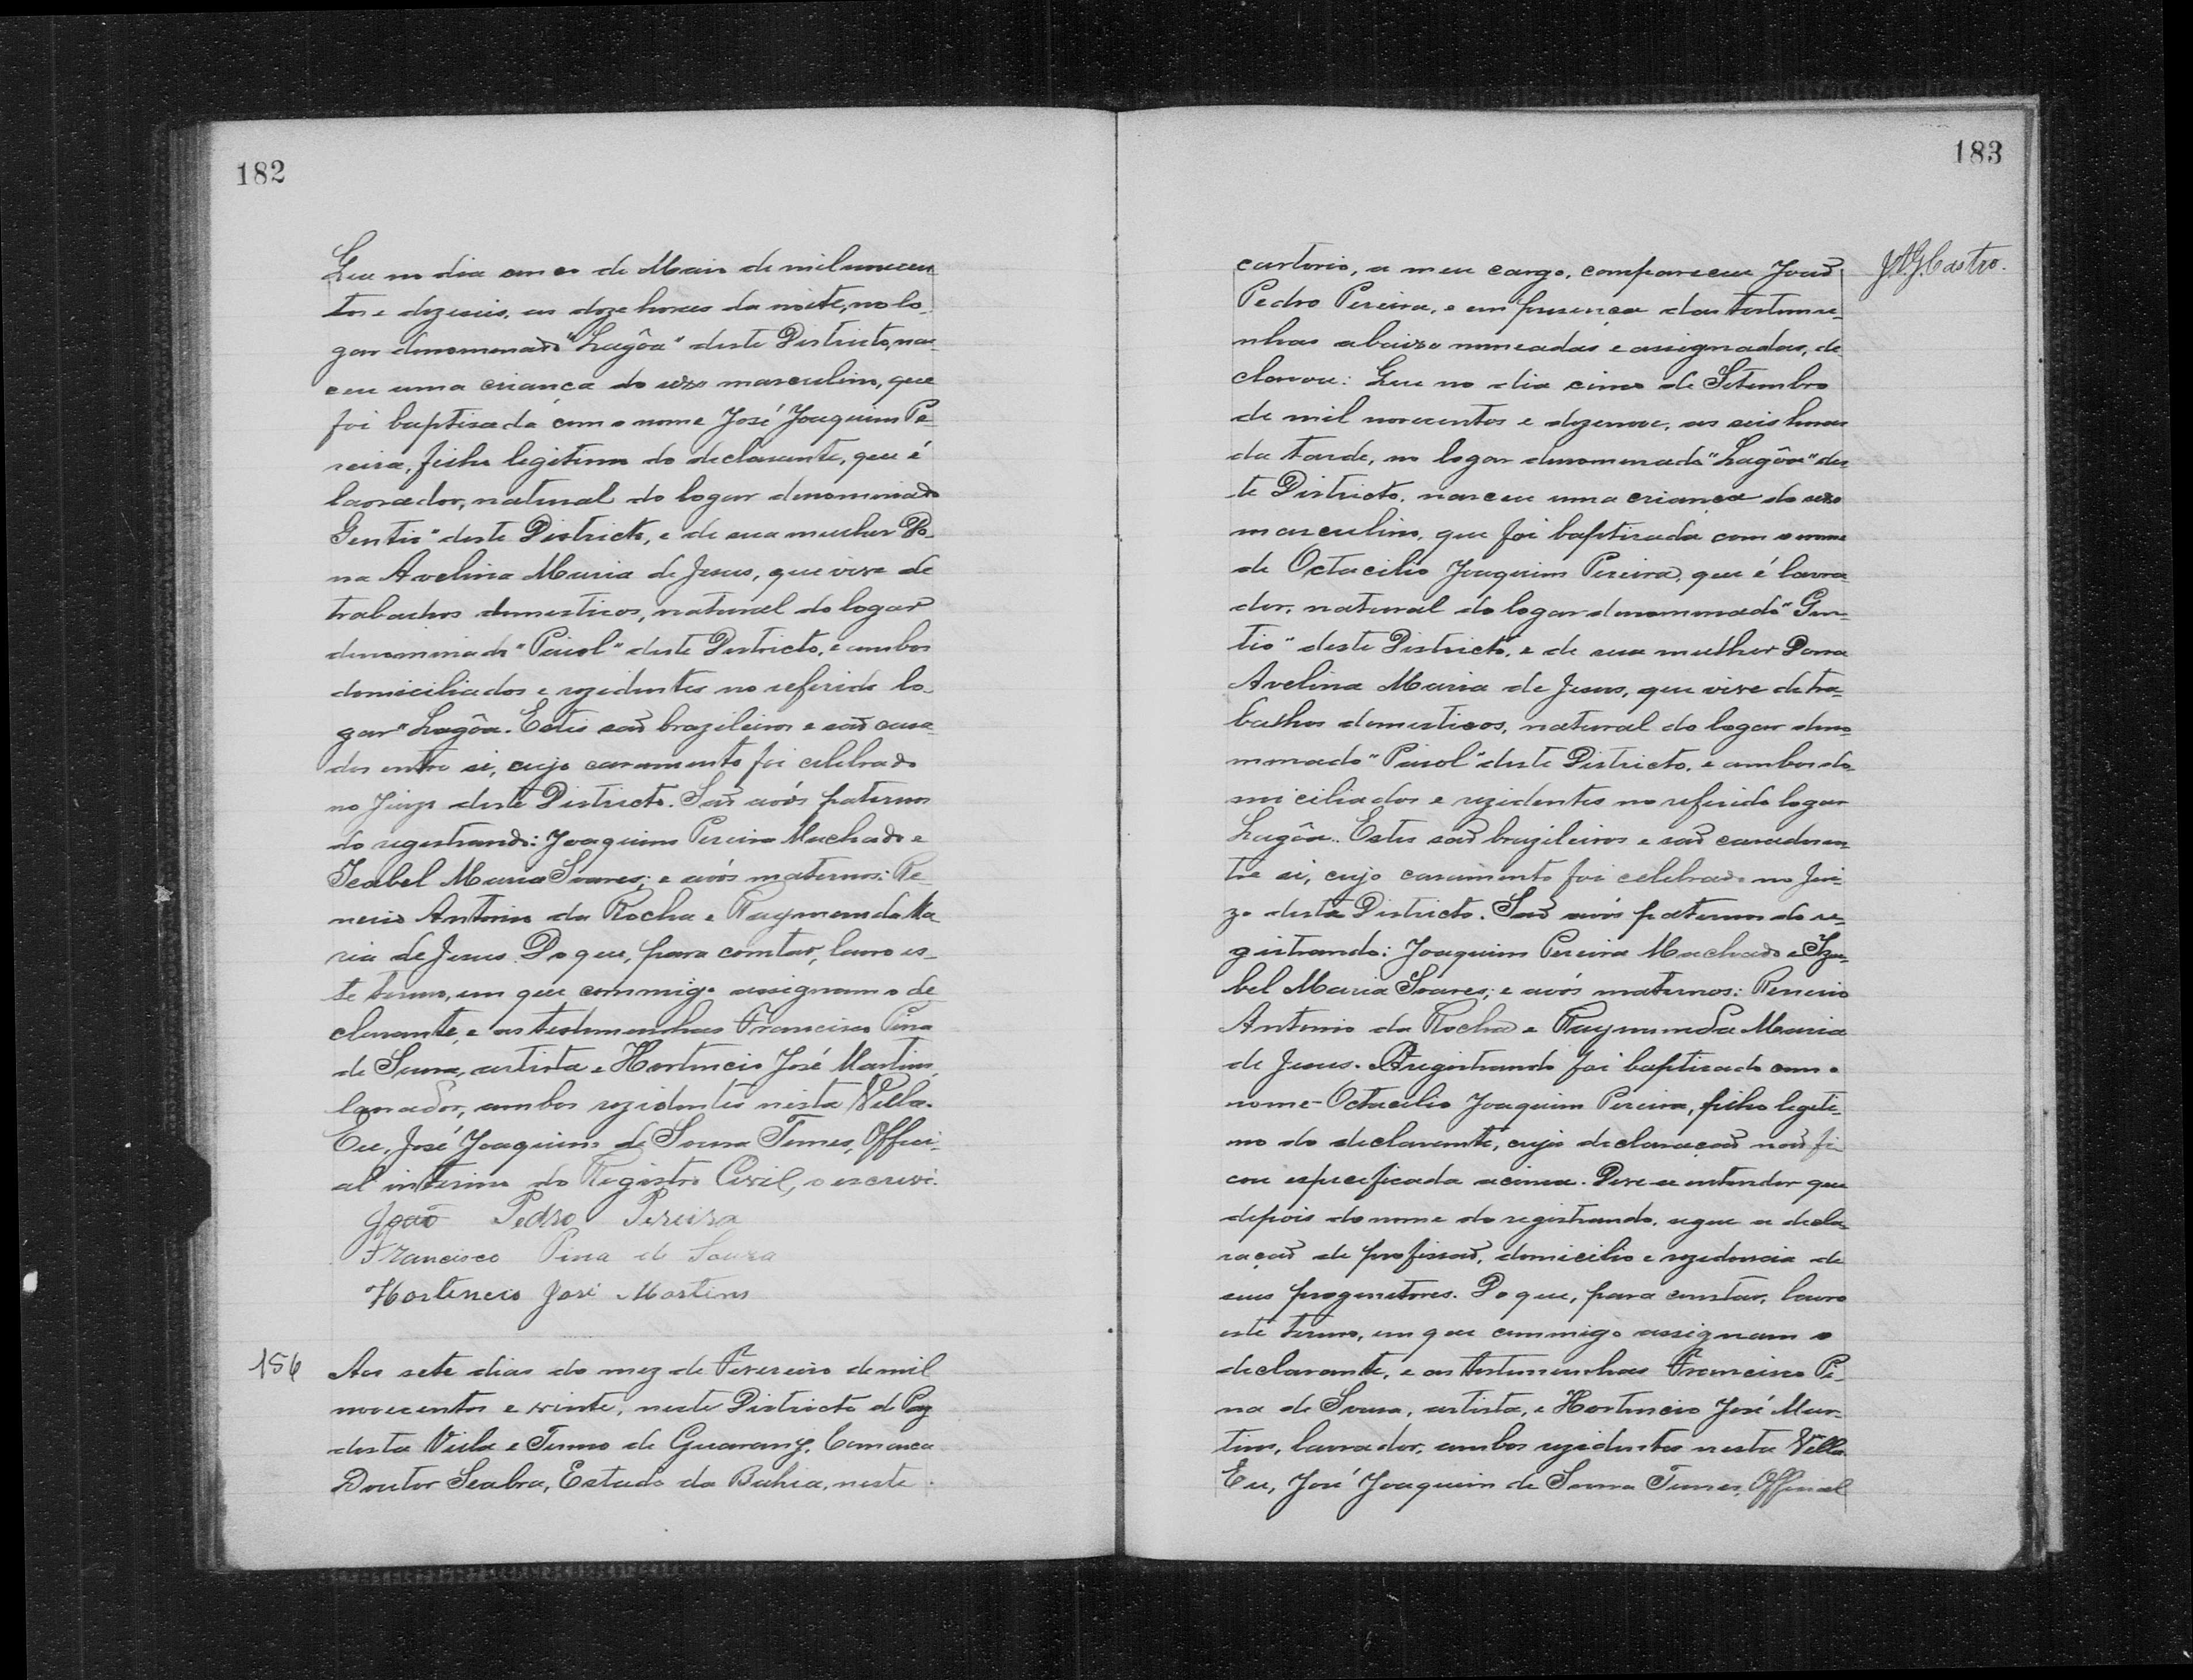 182
Que no dia onze de Maio de mil novecen
tos e dezeseis, as doze horas da noite, no lo-
gar denominado "Lagôa" deste Districto, nas-
ceu uma criança do sexo masculino, que
foi baptisada com o nome José Joaquim Pe-
reira, filho legitimo do declarante, que é
lavrador, natural do logar denominado
Gentio" deste Districto, e de sua mulher Do-
na Avelina Maria de Jesus, que vive de
trabalhos domesticos, natural do logar
denominado "Paiol" deste Districto, e ambos
domiciliados e rezidentes no referido lo-
gar "Lagôa. Estes saõ brazileiros e saõ casa-
dos entre si, cujo casamento foi celebrado
no Juizo deste Districto. Saõ avós paternos
do registrando: Joaquim Pereira Machado e
Isabel Maria Soares; e avós maternos: Re-
nerio Antonio da Rocha e Raymunda Ma
ria de Jesus. Do que, para constar, lavro es-
te termo, em que commigo assignam o de
clarante, e as testemunhas Francisco Pina
de Souza, artista e Hortencio José Martins,
lavrador, ambos rezidentes nesta Villa.
Eu, José Joaquim de Souza Tunes, Offici-
al interino do Registro Civil, o escrevi.
João Pedro Pereira
Francisco Pina de Souza
Hortencio José Martins
156 Aos sete dias do mez de Fevereiro de mil
novecentos e vinte, neste Districto de Paz
desta Villa e Termo de Guarany, Comarca
Doutor Seabra, Estado da Bahia, neste
183
cartorio, a meu cargo, compareceu Joaõ
Pedro Pereira, e em presença das testemu-
nhas abaixo nomeadas e assignadas, de
clarou: Que no dia cinco de Setembro
de mil novecentos e dezenove, as seis horas
da tarde, no logar denominado "Lagôa" des
te Districto, nasceu uma criança do sexo
masculino, que foi baptisada com o nome
de Octacilio Joaquim Pereira, que é lavra
dor, natural do logar denominado "Gen-
tio" deste Districto, e de sua mulher Dona
Avelina Maria de Jesus, que vive de tra-
balhos domesticos, natural do logar deno-
minado "Paiol" deste Districto, e ambos do-
miciliados e rezidentes no referido logar
Lagôa. Estes saõ brazileiros e saõ casados en-
tre si, cujo casamento foi celebrado no Jui-
zo deste Districto. Saõ avós paternos do re-
gistrando: Joaquim Pereira Machado e Iza-
bel Maria Soares; e avós maternos: Renerio
Antonio da Rocha e Raymunda Maria
de Jesus. O registrando foi baptisado com o
nome Octacilio Joaquim Pereira, filho legiti-
mo do declarante, cuja declaraçaõ naõ fi-
cou especificada acima. Deve-se entender que
depois do nome do registrando, segue a decla-
raçaõ de profissaõ, domicilio e rezidencia de
seus progenitores. Do que, para constar, lavro
este termo, em que commigo assignam o
declarante, e as testemunhas Francisco Pi-
na de Souza, artista, e Hortencio José Mar-
tins, lavrador, ambos rezidentes nesta Villa.
Eu, José Joaquim de Souza Tunes, Official
J.A.G. Castro.